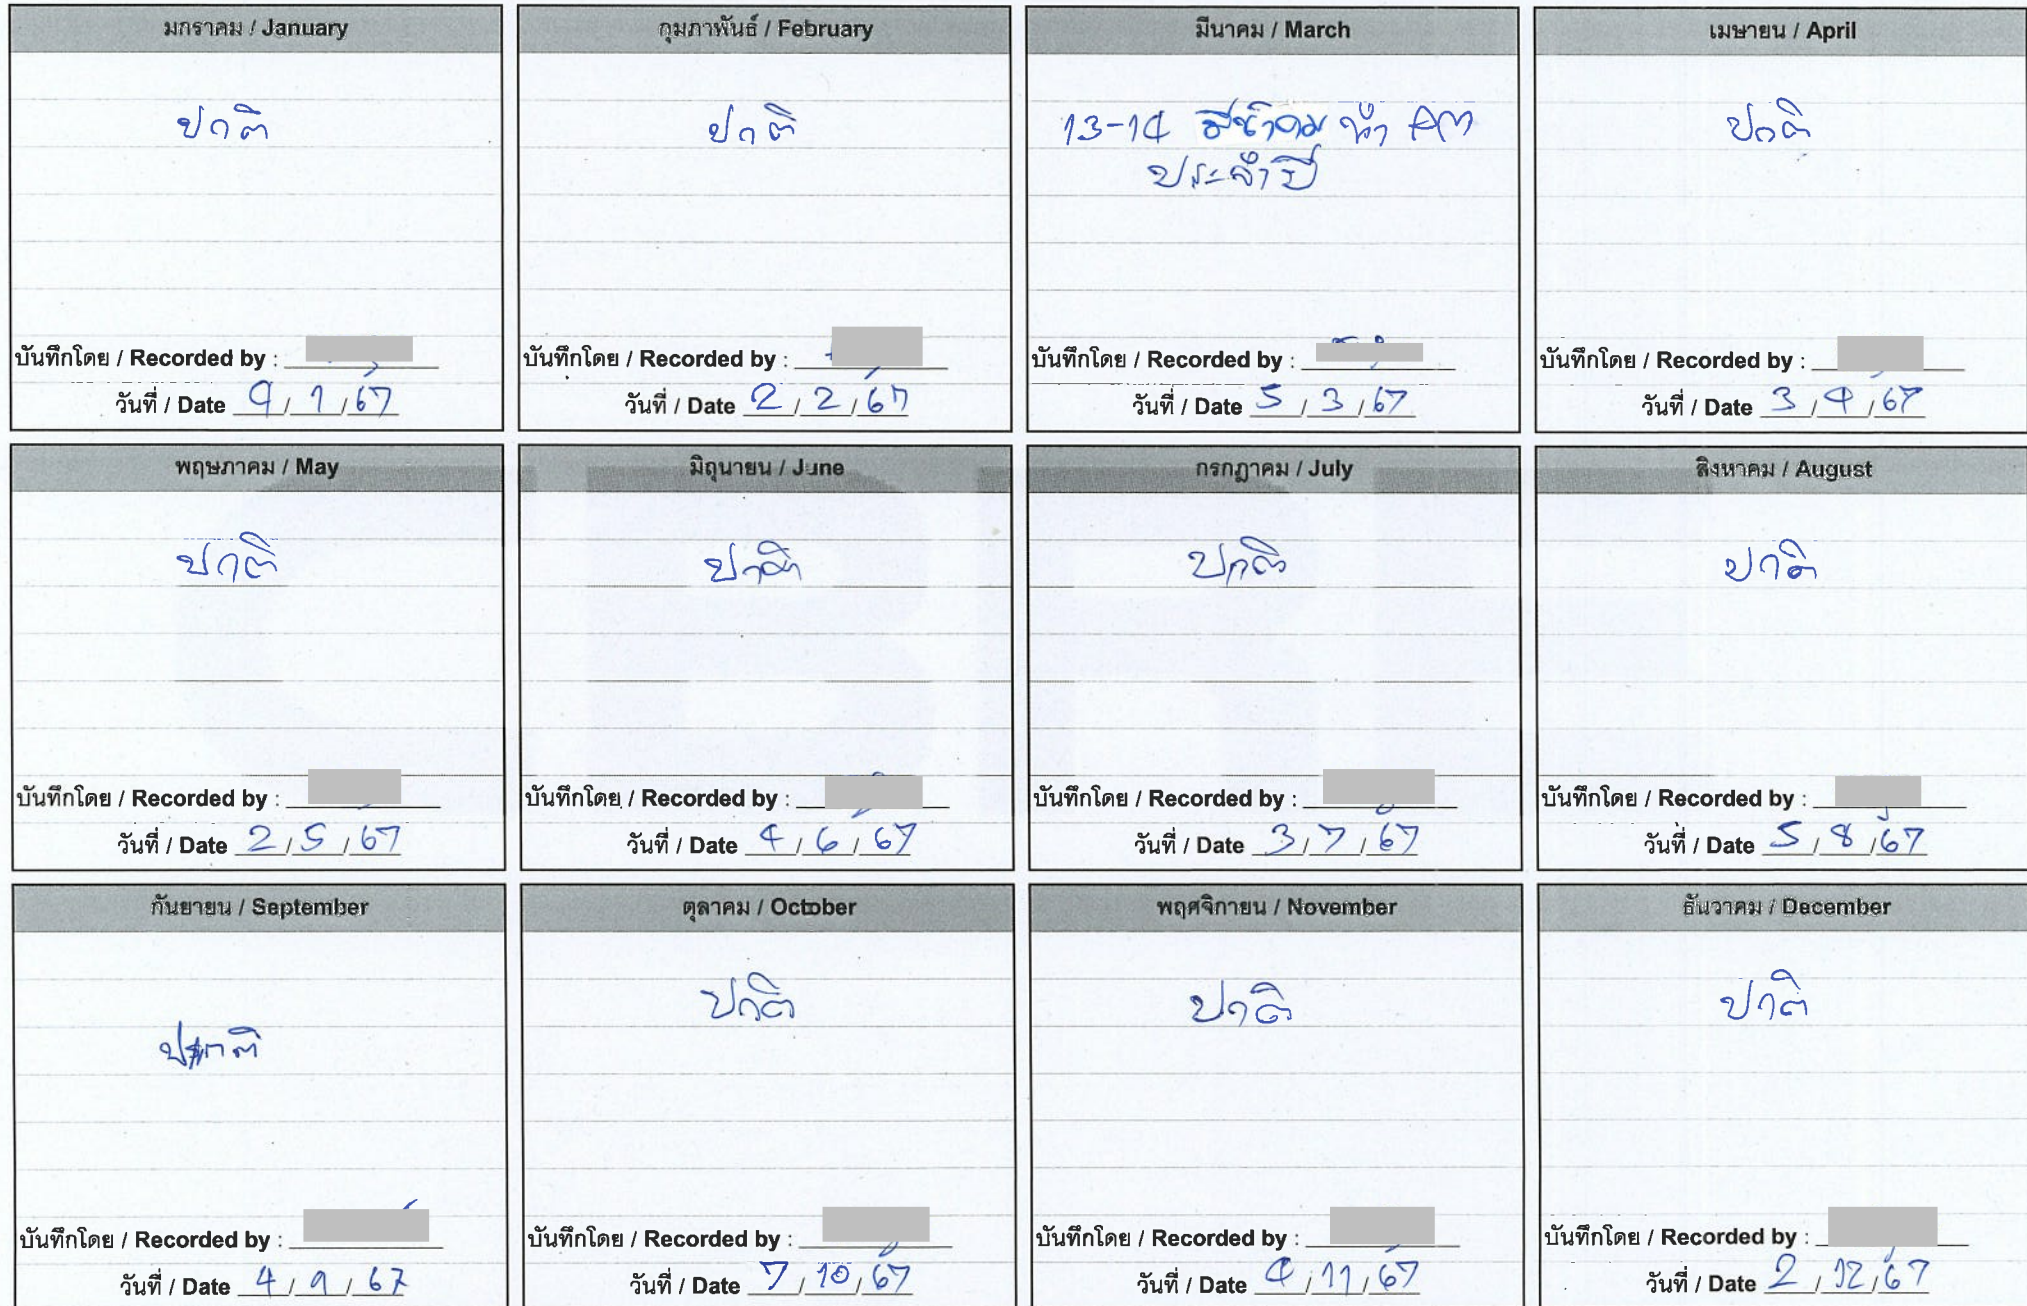 มกราคม / January
ปกติ
บันทึกโดย / Recorded by :
วันที่ / Date 9 / 1 / 67
กุมภาพันธ์ / February
ปกติ
บันทึกโดย / Recorded by :
วันที่ / Date 2 / 2 / 67
มีนาคม / March
13-14 มีนาคม ทำ PM
ประจำปี
บันทึกโดย / Recorded by :
วันที่ / Date 5 / 3 / 67
เมษายน / April
ปกติ
บันทึกโดย / Recorded by :
วันที่ / Date 3 / 4 / 67
พฤษภาคม / May
ปกติ
บันทึกโดย / Recorded by :
วันที่ / Date 2 / 5 / 67
มิถุนายน / June
ปกติ
บันทึกโดย / Recorded by :
วันที่ / Date 4 / 6 / 67
กรกฎาคม / July
ปกติ
บันทึกโดย / Recorded by :
วันที่ / Date 3 / 7 / 67
สิงหาคม / August
ปกติ
บันทึกโดย / Recorded by :
วันที่ / Date 5 / 8 / 67
กันยายน / September
ปกติ
บันทึกโดย / Recorded by :
วันที่ / Date 4 / 9 / 67
ตุลาคม / October
ปกติ
บันทึกโดย / Recorded by :
วันที่ / Date 7 / 10 / 67
พฤศจิกายน / November
ปกติ
บันทึกโดย / Recorded by :
วันที่ / Date 4 / 11 / 67
ธันวาคม / December
ปกติ
บันทึกโดย / Recorded by :
วันที่ / Date 2 / 12 / 67